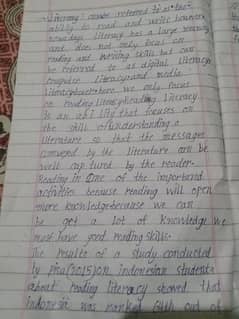 Literacy can be referred to as the
ability to read and write however
nowadays literacy has a large meaning
and does not only focus on
reading and writing skills but can
be referred to as digital literacy
computer literacy and media
literacy but here we only focus
on reading literacy Reading literacy
is an ability that focuses on
the skill of understanding a
literature so that the messages
conveyed by the literature can be
well captured by the reader.
Reading is one of the important
activities because reading will open
more knowledge because we can
be get a lot of knowledge we
must have good reading skills.
The results of a study conducted
by pisa (2015) on indonesian students
about reading literacy showed that
indonesia was ranked 64th out of